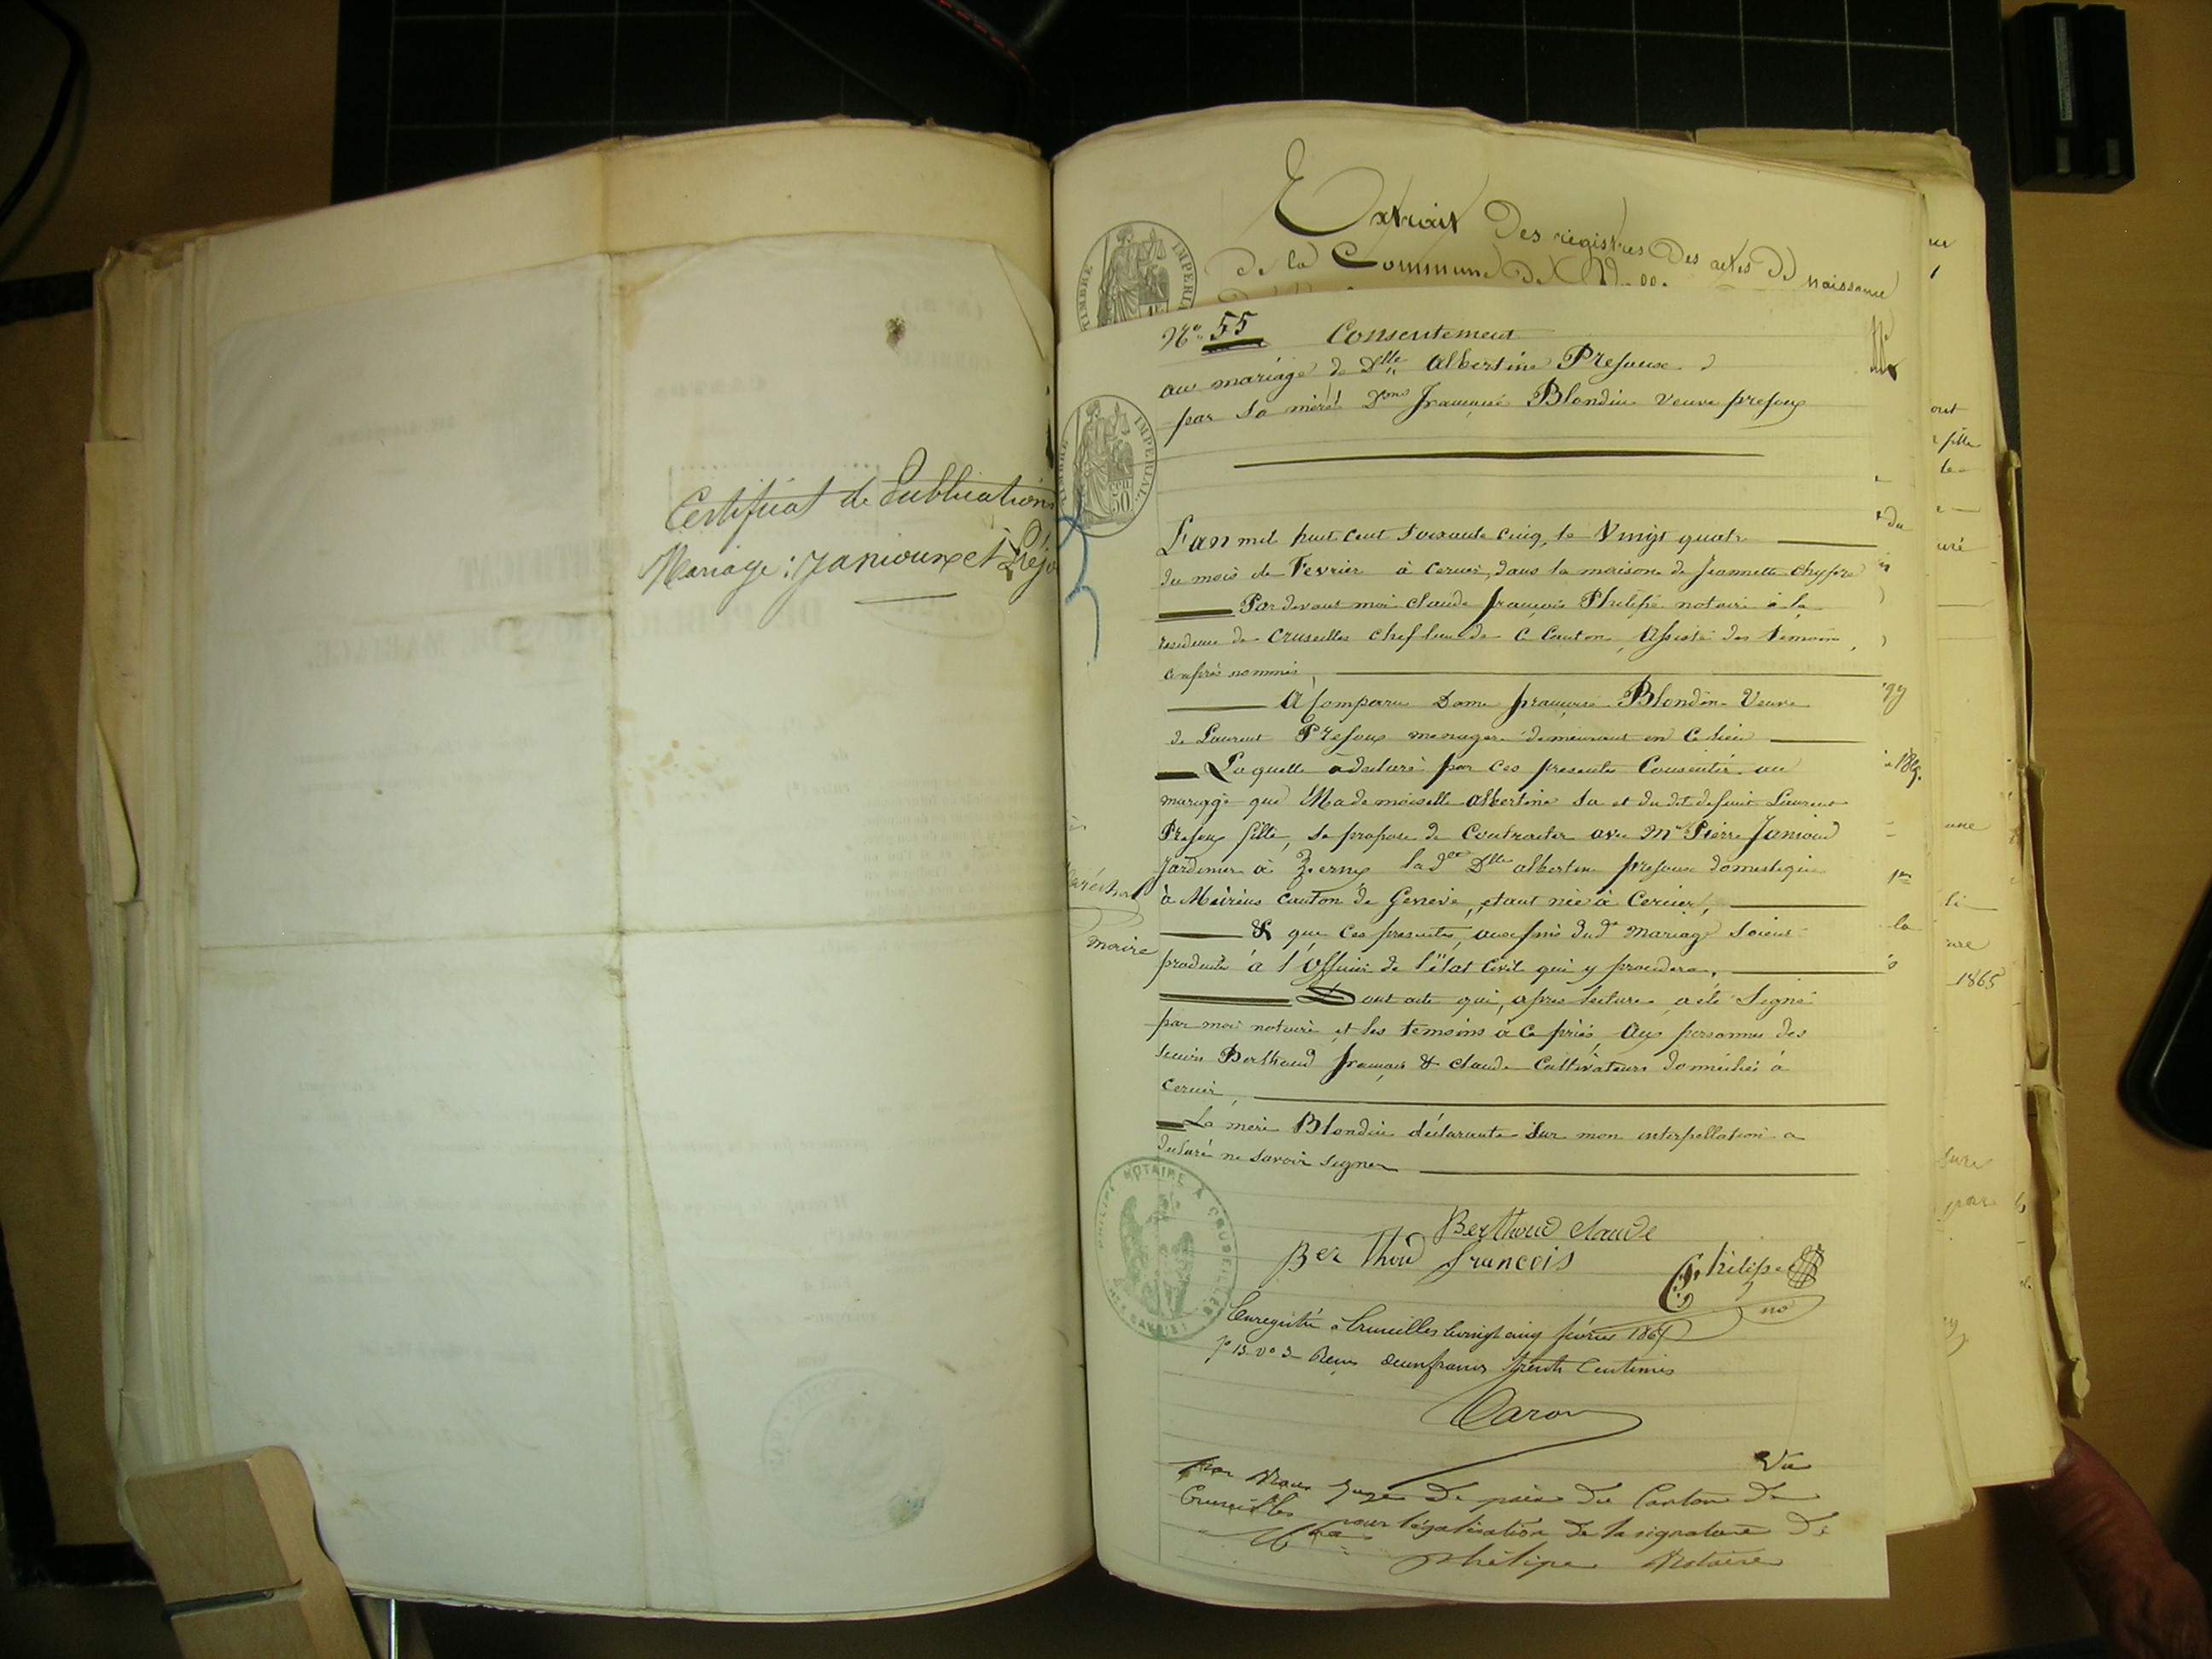 Certificat de Publications
Mariage : Janioux et Préjo
Extrait Des registres Des actes De Naissance
De la Commune De
TIMBRE IMPERIAL
No 55 Consentement
au mariage de Dlle Albertine Prejoux
par sa mère Dme Françoise Blondin veuve prejoux
TIMBRE IMPERIAL
50
L'an mil huit cent soixante cinq, le Vingt quatre
du mois de Fevrier à Cernex, dans la maison de Jeannette
Par devant moi Claude françois Philipe notaire à la
residence de Cruseilles chef lieu de Canton, Assisté des temoins
ci après nommés,
A Comparu Dame françoise Blondin Veuve
de Laurent Prejoux menagere demeurant en ce lieu
Laquelle a declaré par ces presentes Consentir au
mariage que Mademoiselle albertine sa et du dit defunt Laurent
Prejoux fille, se propose de Contracter avec Mr Pierre Janioud
Jardinier à la de Dlle albertine prejoux domestique
à Meirins Canton de Genève, etant née à Cernex,
& que ces presentes, aux fins dud. mariage soient
produites à l'Officier de l'état Civil qui y procedera,
Dont acte qui, apres lecture a été Signé
par moi notaire et les temoins à ce priés, Aux personnes des
sieurs Berthoud françois & claude Cultivateurs domiciliés à
Cernex,
La mère Blondin déclarante sur mon interpellation a
declaré ne savoir signer
Berthoud claude
Berthoud francois Philipe
no
PHILIPE NOTAIRE A CRUSEILLES
Enregistré à Cruseilles le vingt cinq février 1865
fo 13 vo 3 Reçu deux francs trente Centimes
Caron
Vu
par Nous Juge De paix Du Canton De
Cruseilles pour légalisation De la signature De
Me Philipe Notaire
maréchal
maire
1865